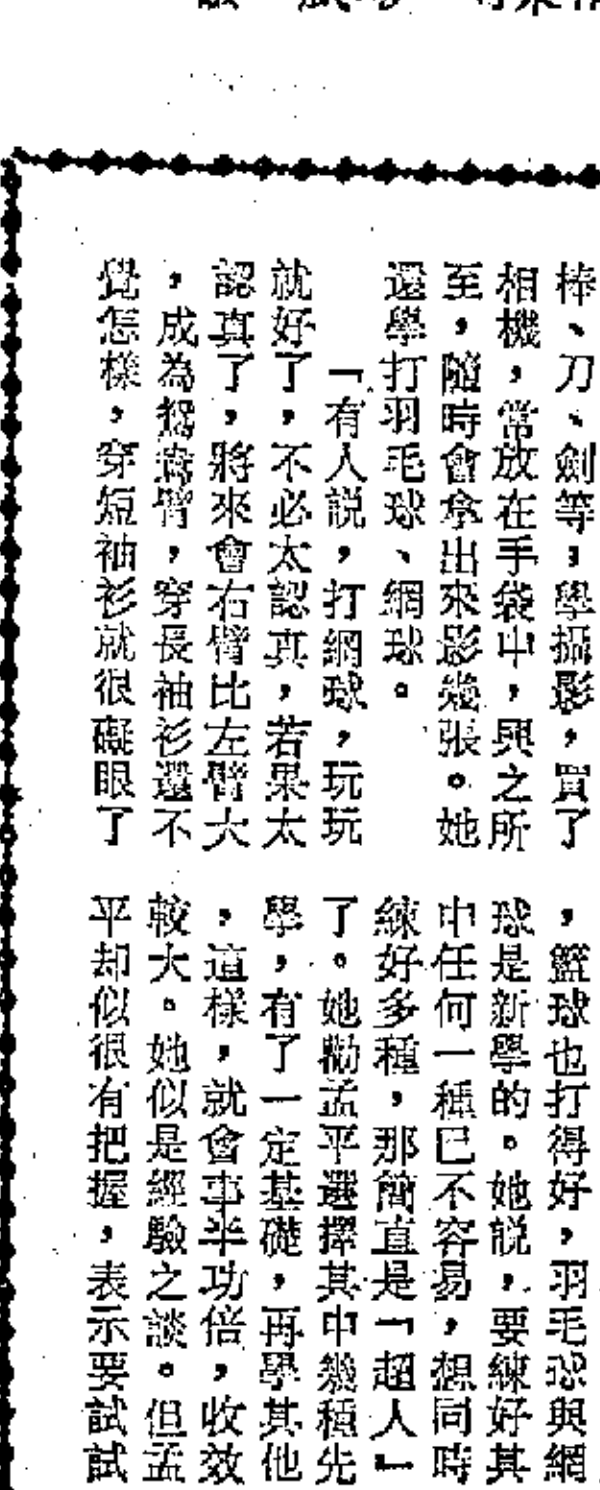 棒、刀、劍等，學攝影，買了
相機，常放在手袋中，興之所
至，隨時會拿出來影幾張。她
還學打羽毛球、網球。
「有人說，打網球，玩玩
就好了，不必太認真，若果太
認真了，將來會右臂比左臂大
，成為鴛鴦臂，穿長袖衫還不
覺怎樣，穿短袖衫就很礙眼了
，籃球也打得好，羽毛球與網
球是新學的。她說，要練好其
中任何一種已不容易，想同時
練好多種，那簡直是「超人」
了。她勸孟平選擇其中幾種先
學，有了一定基礎，再學其他
，這樣，就會事半功倍，收效
較大。她似是經驗之談。但孟
平却似很有把握，表示要試試